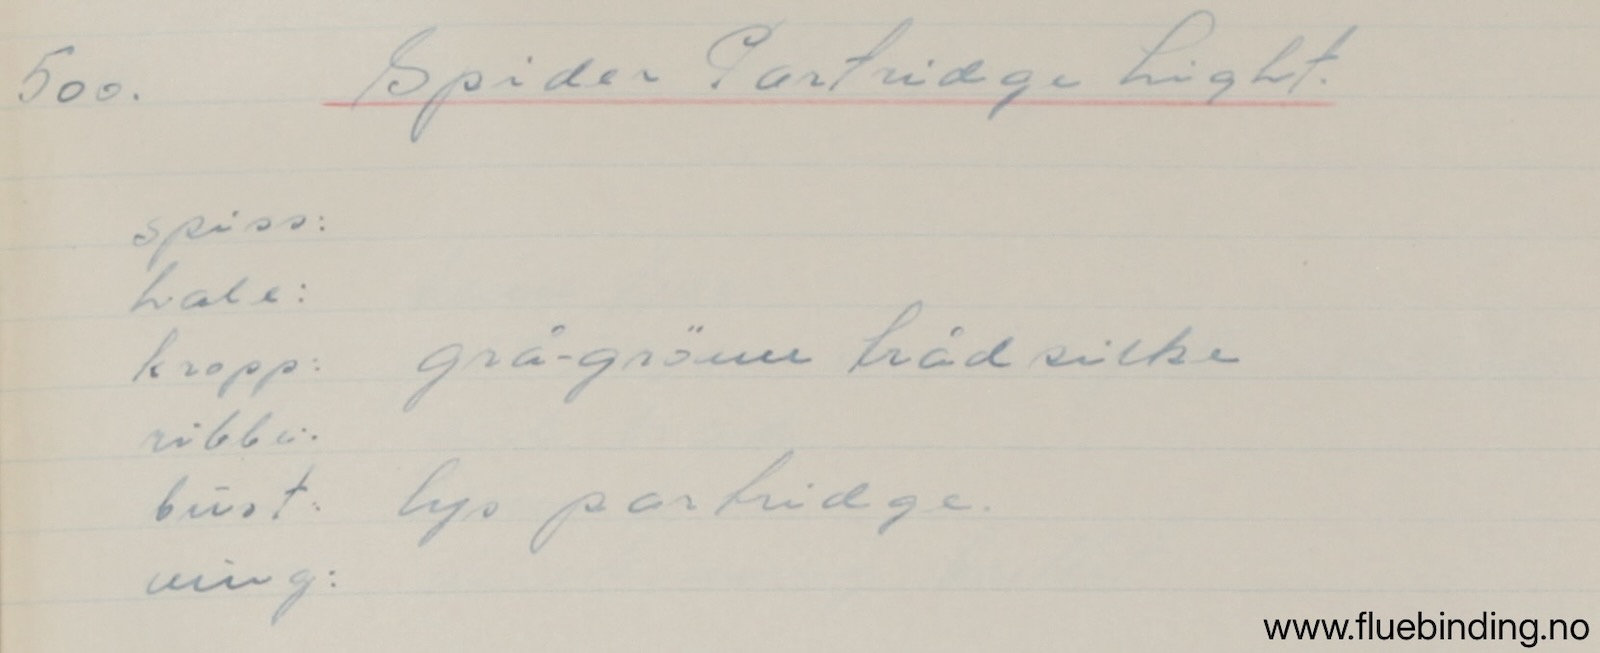 500. Spider Partridge Light.
spiss:
hale:
kropp: grå-grönn trådsilke
ribbe:
bust: lys partridge.
ving:
www.fluebinding.no